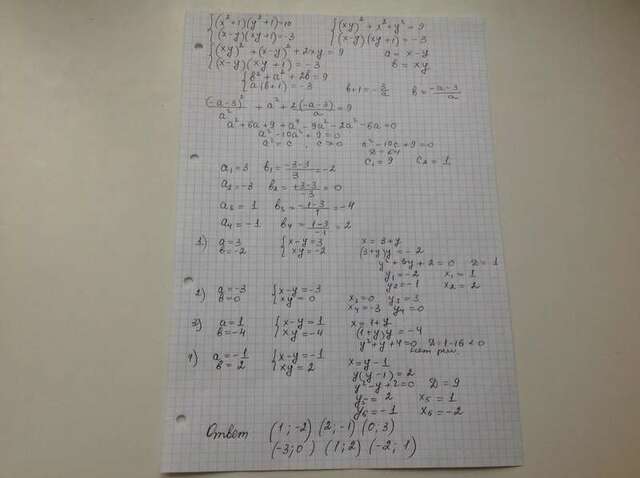 {(x²+1)(y²+1)=10 {(xy)²+x²+y²=9
{(x-y)(xy+1)=-3 {(x-y)(xy+1)=-3
{(xy)²+(x-y)²+2xy=9 a=x-y
{(x-y)(xy+1)=-3 b=xy
{b²+a²+2b=9
{a(b+1)=-3 b+1=-3/a b=(-a-3)/a
(-a-3)²/a² + a² + 2(-a-3)/a = 9
a²+6a+9+a⁴-9a²-2a²-6a=0
a⁴-10a²+9=0 c²-10c+9=0
a²=c, c>0 D=64
c₁=9 c₂=1
a₁=3 b₁=(-3-3)/3=-2
a₂=-3 b₂=(+3-3)/-3=0
a₃=1 b₃=(-1-3)/1=-4
a₄=-1 b₄=(1-3)/-1=2
1) a=3 {x-y=3 x=3+y
b=-2 {xy=-2 (3+y)y=-2
y²+3y+2=0 D=1
y₁=-2 x₁=1
y₂=-1 x₂=2
2) a=-3 {x-y=-3 x₃=0 y₃=3
b=0 {xy=0 x₄=-3 y₄=0
3) a=1 {x-y=1 x=1+y
b=-4 {xy=-4 (1+y)y=-4
y²+y+4=0 D=1-16<0
нет реш.
4) a=-1 {x-y=-1 x=y-1
b=2 {xy=2 y(y-1)=2
y²-y+2=0 D=9
y₅=2 x₅=1
y₆=-1 x₆=-2
Ответ (1;-2) (2;-1) (0,3)
(-3;0) (1;2) (-2; 1)